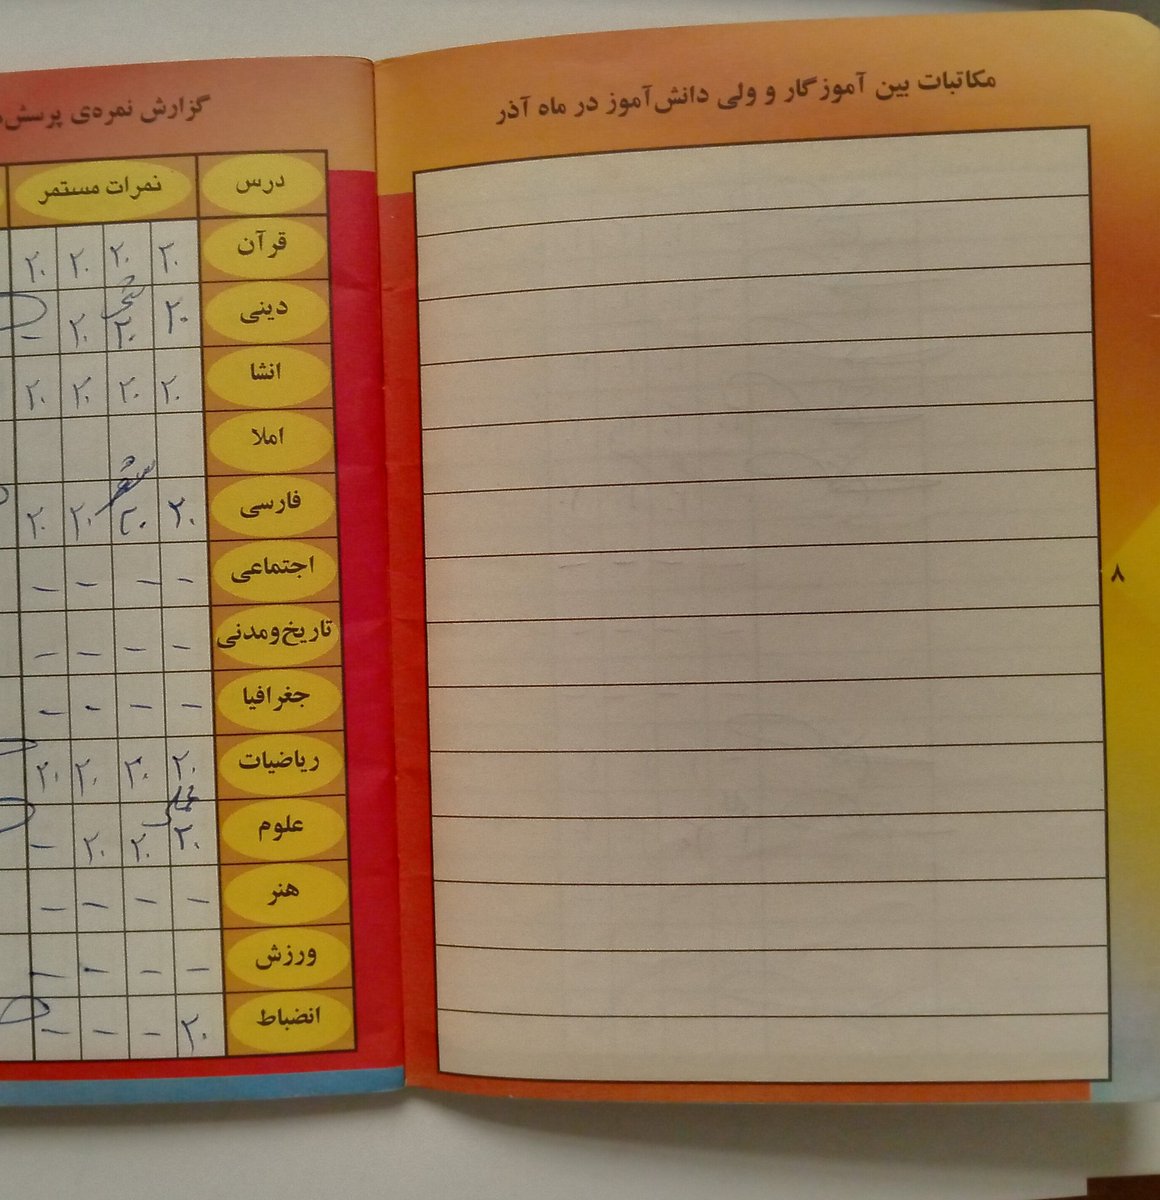 مکاتبات بین آموزگار و ولی دانش‌آموز در ماه آذر
۸
گزارش نمره‌ی پرسش‌
درس نمرات مستمر
قرآن ۲۰ ۲۰ ۲۰ ۲۰
دینی ۲۰ ۲۰ ۲۰ -
انشا ۲۰ ۲۰ ۲۰ ۲۰
املا
فارسی ۲۰ ۲۰ ۲۰ ۲۰
اجتماعی - - - -
تاریخ‌و‌مدنی - - - -
جغرافیا - - - -
ریاضیات ۲۰ ۲۰ ۲۰ ۲۰
علوم ۲۰ ۲۰ ۲۰ -
هنر - - - -
ورزش - - - -
انضباط ۲۰ - - -